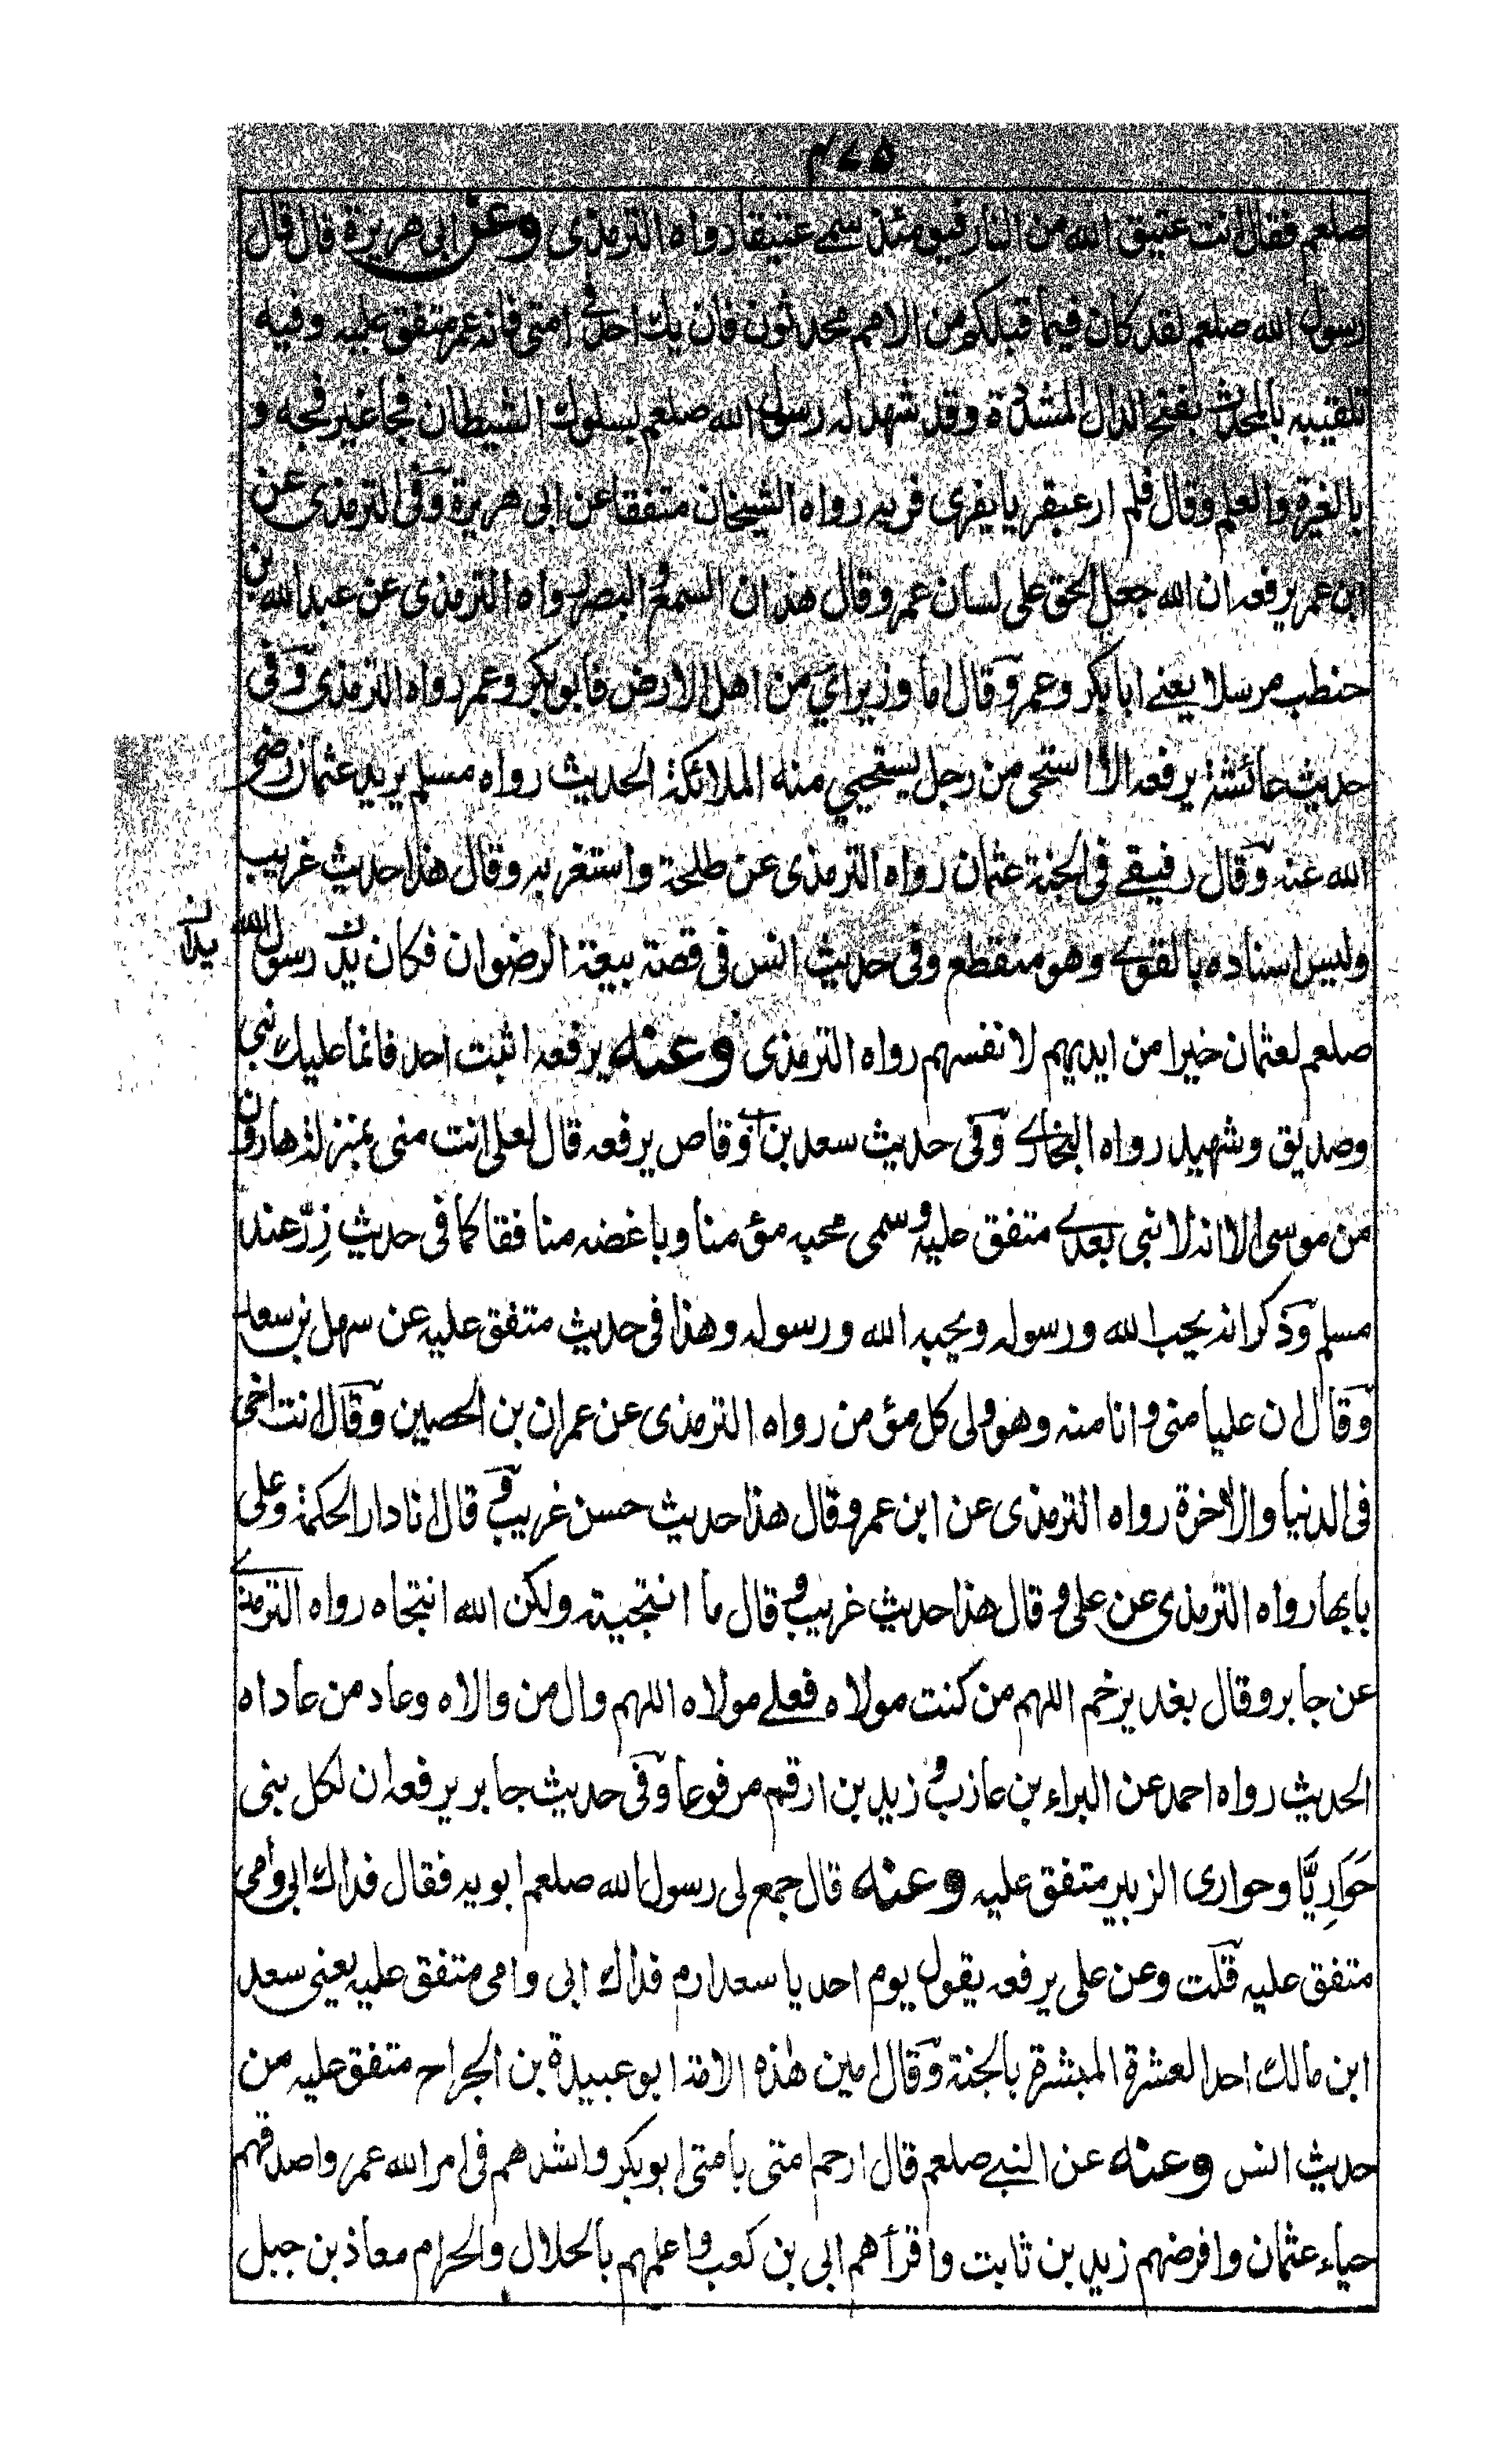 ٤٧٥
صلعم فقال انت عتيق الله من النار فيومئذ سمي عتيقا رواه الترمذى وعن ابى هريرة قال قال
رسول الله صلعم لقد كان فيما قبلكم من الامم محدثون فان يك احد فى امتى فانه عمر متفق عليه وفيه
تلقيبه بالمحدث بفتح الدال المشددة وقد شهد له رسول الله صلعم بسلوك الشيطان فجا غير فجه و
بالغيرة والعلم وقال فلم ار عبقريا يفرى فريه رواه الشيخان متفقا عن ابى هريرة وفى الترمذى عن
ابن عمر يرفعه ان الله جعل الحق على لسان عمر وقال هذان السمع والبصر رواه الترمذى عن عبد الله بن
حنطب مرسلا يعنے ابا بكر وعمر وقال اما وزيراي من اهل الارض فابو بكر وعمر رواه الترمذى وفى
حديث عائشة يرفعه الا استحى من رجل يستحيي منه الملائكة الحديث رواه مسلم يريد عثمان رضى
الله عنه وقال رفيقے فى الجنة عثمان رواه الترمذى عن طلحة واستغربه وقال هذا حديث غريب
وليس اسناده بالقوے وهو منقطع وفى حديث انس فى قصة بيعة الرضوان فكان يد رسول الله
صلعم لعثمان خيرا من ايديهم لانفسهم رواه الترمذى وعنه يرفعه اثبت احد فانما عليك نبى
وصديق وشهيد رواه البخارے وفى حديث سعد بن ابى وقاص يرفعه قال لعلى انت منى بمنزلة هارون
من موسى الا انه لا نبى بعدے متفق عليه وسمى محبه مؤمنا وباغضه منافقا كما فى حديث زِرّ عند
مسلم وذكر انه يحب الله ورسوله ويحبه الله ورسوله وهذا فى حديث متفق عليه عن سهل بن سعد
وقال ان عليا منى وانا منه وهو ولى كل مؤمن رواه الترمذى عن عمران بن الحصين وقال انت اخى
فى الدنيا والاخرة رواه الترمذى عن ابن عمر وقال هذا حديث حسن غريب وقال انا دار الحكمة وعلى
بابها رواه الترمذى عن على وقال هذا حديث غريب وقال ما انتجيته ولكن الله انتجاه رواه الترمذے
عن جابر وقال بغدير خم اللهم من كنت مولاه فعلے مولاه اللهم وال من والاه وعاد من عاداه
الحديث رواه احمد عن البراء بن عازب وزيد بن ارقم مرفوعا وفى حديث جابر يرفعه ان لكل نبى
حَوَارِيًّا وحوارى الزبير متفق عليه وعنه قال جمع لى رسول الله صلعم ابويه فقال فداك ابى وامى
متفق عليه قلت وعن على يرفعه يقول يوم احد يا سعد ارم فداك ابى وامى متفق عليه يعنى سعد
ابن مالك احد العشرة المبشرة بالجنة وقال امين هذه الامة ابو عبيدة بن الجراح متفق عليه من
حديث انس وعنه عن النبے صلعم قال ارحم امتى بامتى ابو بكر واشدهم فى امر الله عمر واصدقهم
حياء عثمان وافرضهم زيد بن ثابت واقرأهم ابى بن كعب واعلمهم بالحلال والحرام معاذ بن جبل